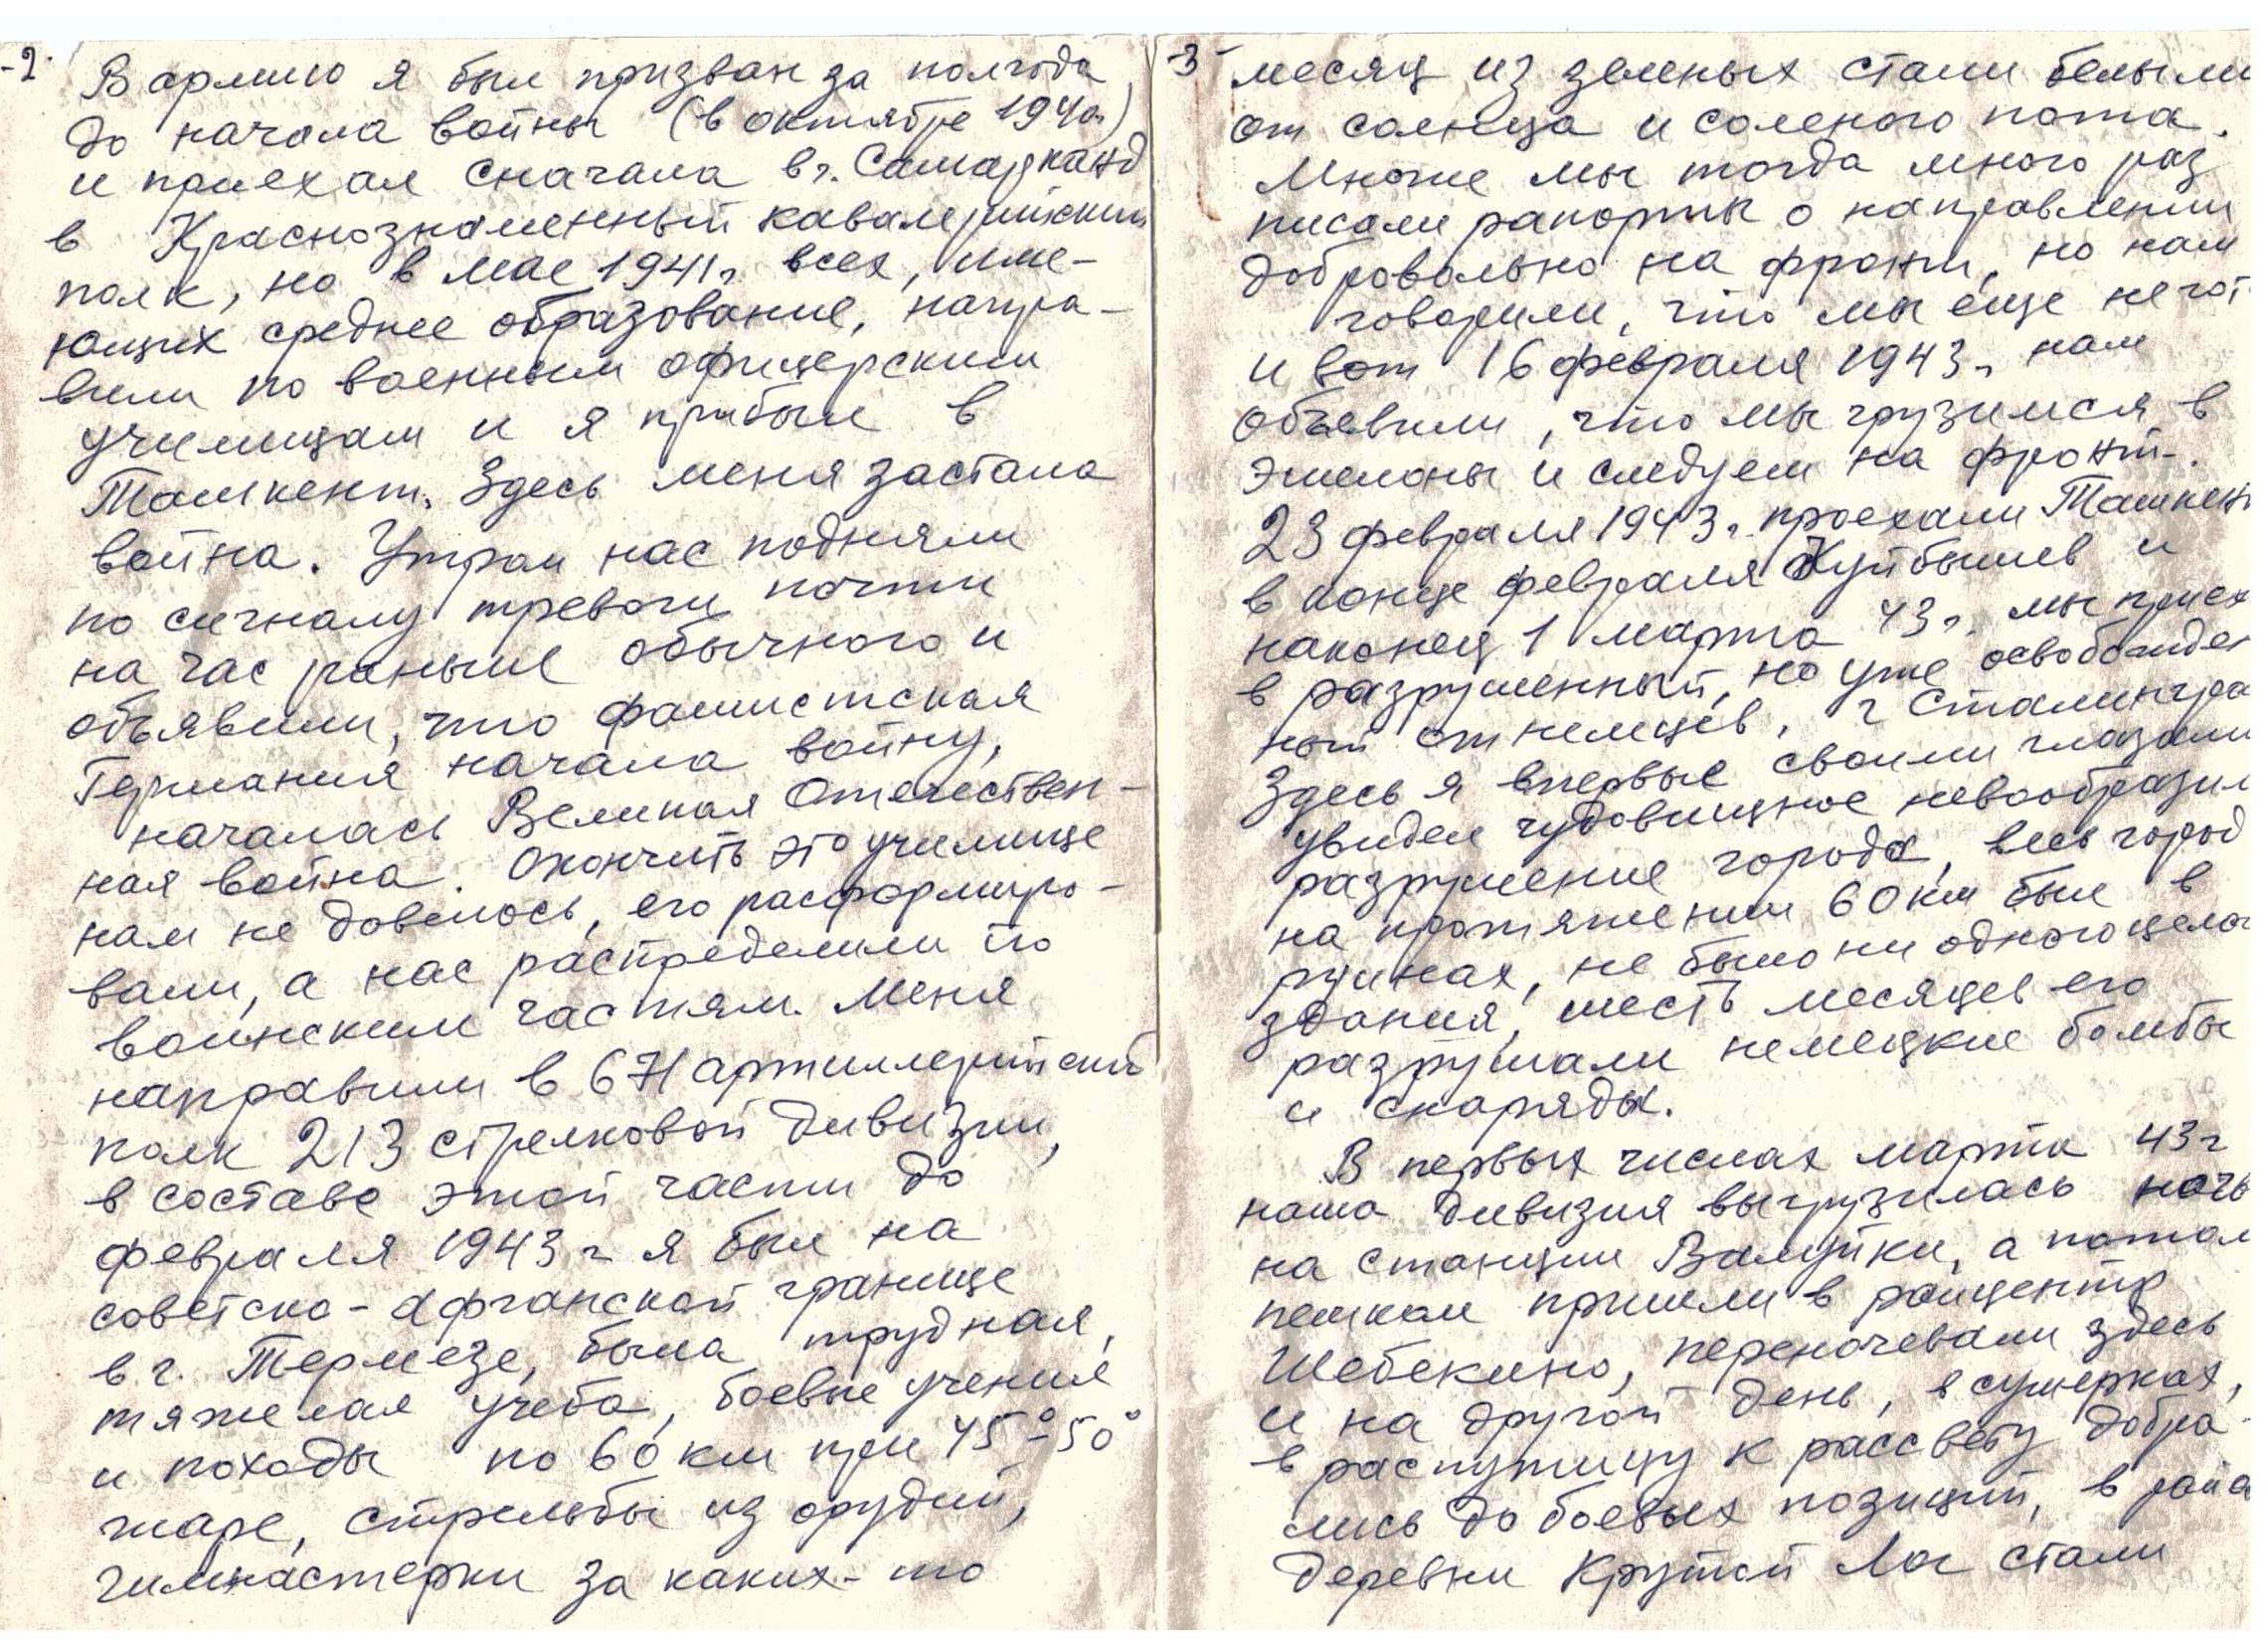 -2.
В армию я был призван за полгода
до начала войны (в октябре 1940г)
и приехал сначала в г. Самарканд
в Краснознаменный кавалерийский
полк, но в мае 1941г. всех, име-
ющих среднее образование, напра-
вили по военным офицерским
училищам и я прибыл в
Ташкент. Здесь меня застала
война. Утром нас подняли
по сигналу тревоги почти
на час раньше обычного и
объявили, что фашистская
Германия начала войну,
началась Великая Отечествен-
ная война. Окончить это училище
нам не довелось, его расформиро-
вали, а нас распределили по
воинским частям. Меня
направили в 671 артиллерийский
полк 213 стрелковой дивизии,
в составе этой части до
февраля 1943 г я был на
советско-афганской границе
в г. Термезе, была трудная,
тяжелая учеба, боевые учения
и походы по 60 км при 45°-50°
жаре, стрельбы из орудий,
гимнастерки за каких-то
-3-
месяц из зеленых стали белыми
от солнца и соленого пота.
Многие мы тогда много раз
писали рапорты о направлении
добровольно на фронт, но нам
говорили, что мы еще не гот
и вот 16 февраля 1943 г. нам
объявили, что мы грузимся в
эшелоны и следуем на фронт.
23 февраля 1943 г. проехали Ташкен
в конце февраля Куйбышев и
наконец 1 марта 43 г. мы приех
в разрушенный, но уже освобожден
ный от немцев, г Сталингра
Здесь я впервые своими глазами
увидел чудовищное невообразим
разрушение города, весь город
на протяжении 60 км был в
руинах, не было ни одного целог
здания, шесть месяцев его
разрушали немецкие бомбы
и снаряды.
В первых числах марта 43 г
наша дивизия выгрузилась ночь
на станции Валуйки, а потом
пешком пришли в райцентр
Шебекино, переночевали здесь
и на другой день, в сумерках,
в распутицу к рассвету добра-
лись до боевых позиций, в райо
деревни Крутой Лог стали